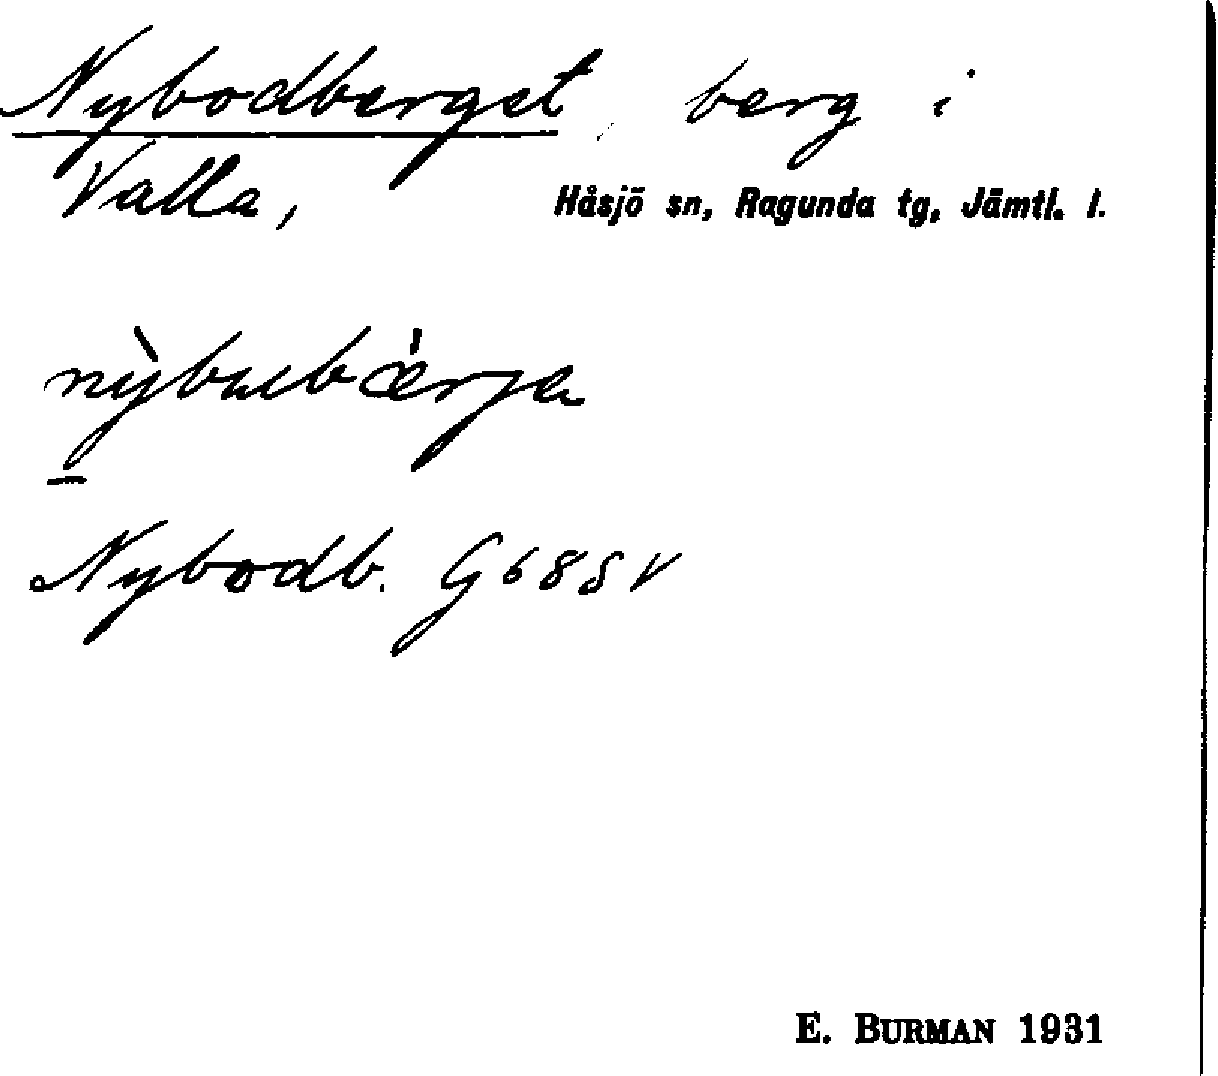 Nybodberget, berg i
Valla, Håsjö sn, Ragunda tg, Jämtl. l.
nỳbubǽrja
Nybodb. G 68 SV
E. BURMAN 1931